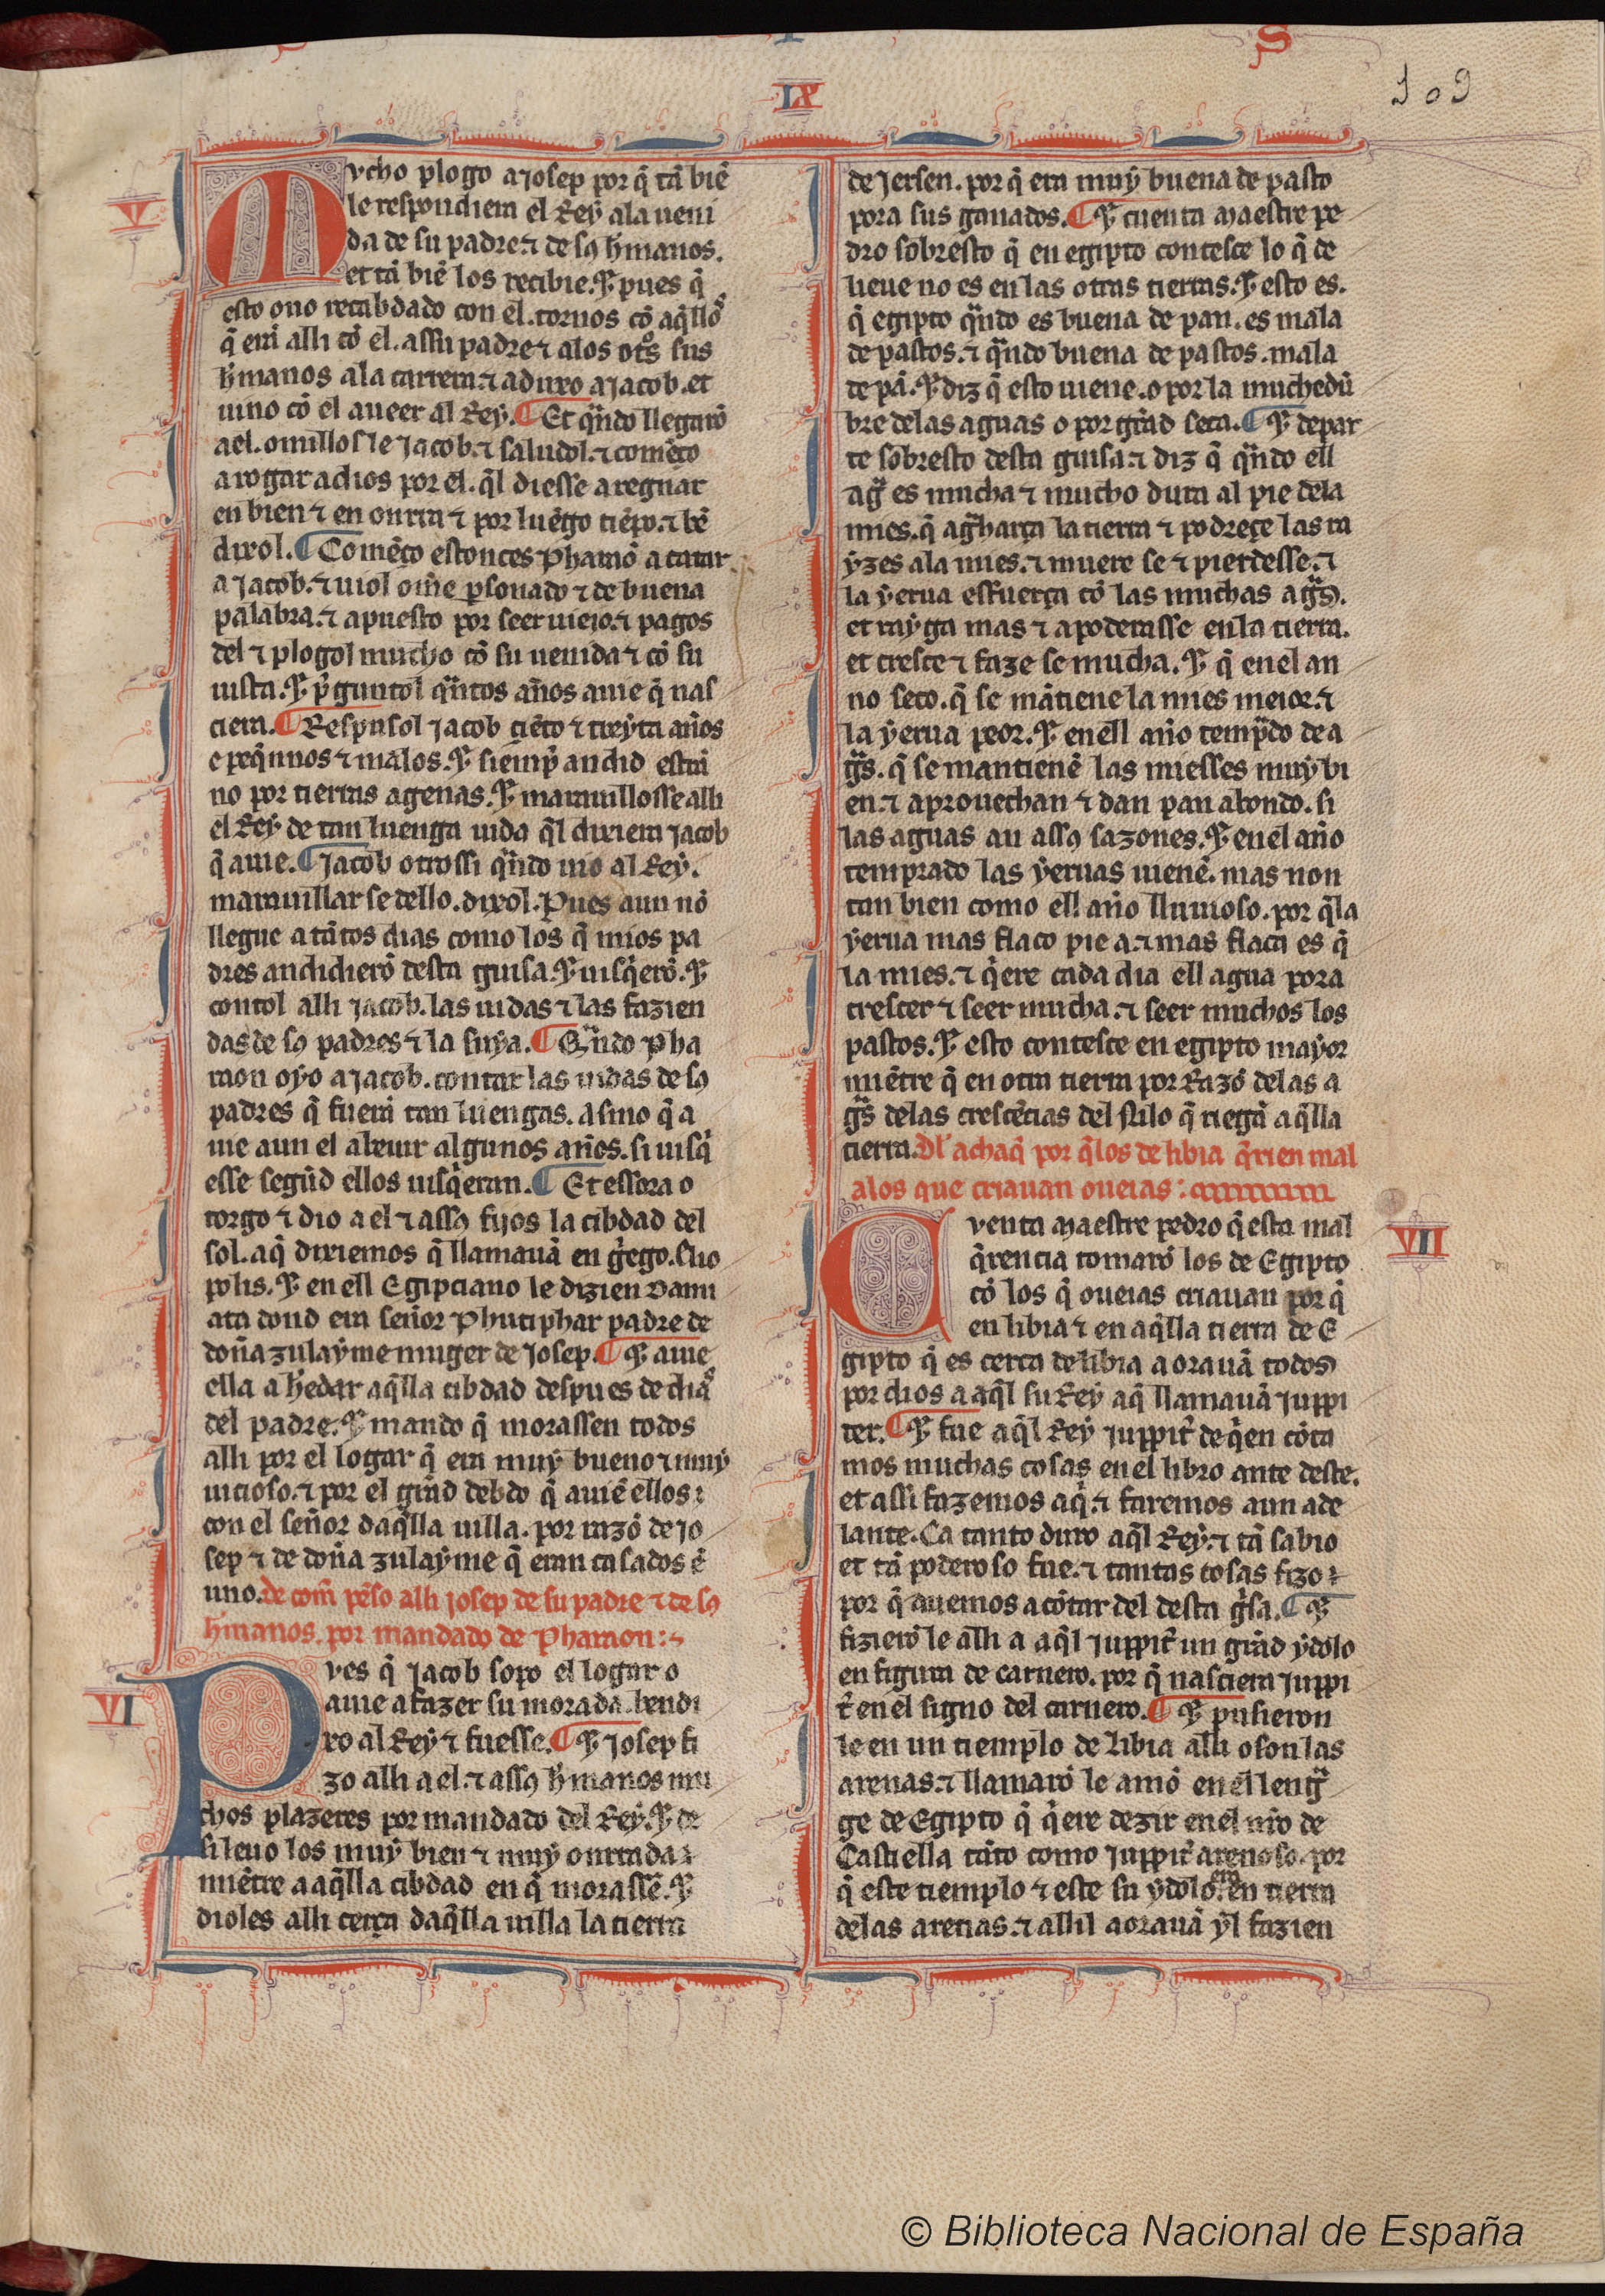 S
IX
109
V
Mucho plogo a josep por q̃ tã biẽ
le respondiera el Rey ala ueni
da de su padre ⁊ de sꝯ h̃manos.
et tã biẽ los recibie. ⁊ pues q̃
esto ouo recabdado con el. tornos cõ aq̃llos
q̃ erã alli cõ el. assu padre ⁊ alos otͦs sus
h̃manos ala carrera. ⁊ aduxo a jacob. et
uino cõ el aueer al Rey. ¶ Et qͣndo llegarõ
a el. omillosle jacob. ⁊ saludol. ⁊ comẽço
a rogar a dios por el. q̃l diesse a regnar
en bien ⁊ en onrra ⁊ por luẽgo tiẽpo. ⁊ bẽ
dixol. ¶ Comẽço estonces Pharaõ a catar
a jacob. ⁊ uiol om̃e ꝑsonado ⁊ de buena
palabra. ⁊ apuesto por seer uieio. ⁊ pagos
del ⁊ plogol mucho cõ su uenida ⁊ cõ su
uista. ⁊ p̃guntol qͣntos años auie q̃ nas
ciera. ¶ Respusol jacob ciẽto ⁊ treynta años
e peq̃nnos ⁊ malos. ⁊ siemp̃ andid estra
no por tierras agenas. ⁊ marauillosse alli
el Rey de tan luenga uida q̃l dixiera jacob
q̃ auie. ¶ jacob otrossi qͣndo uio al Rey.
marauillar se dello. dixol. Pues aun nõ
llegue a tãtos dias como los q̃ mios pa
dres andidierõ desta guisa. ⁊ uisq̃erõ. ⁊
contol alli jacob. las uidas ⁊ las fazien
das de sꝯ padres ⁊ la suya. ¶ Qͣndo pha
raon oyo a jacob. contar las uidas de sꝯ
padres q̃ fuerã tan luengas. asmo q̃ a
uie aun el abeuir algunos años. si uisq̃
esse segũd ellos uisq̃eran. ¶ Et essora o
torgo ⁊ dio a el ⁊ assꝯ fijos la cibdad del
sol. aq̃ dixiemos q̃ llamauã en g̃ego. Elio
polis. ⁊ en ell Egipciano le dizien Dami
ata dond era señor Phutiphar padre de
doña zulayme muger de josep. ¶ ⁊ auie
ella a h̃edar aq̃lla cibdad despues de dias
del padre. ⁊ mando q̃ morassen todos
alli por el logar q̃ era muy bueno ⁊ muy
uicioso. ⁊ por el grãd debdo q̃ auiẽ ellos
con el señor daq̃lla uilla. por razõ de jo
sep ⁊ de doña zulayme q̃ eran casados ẽ
uno. de com̃ pẽso alli josep de su padre ⁊ de sꝯ
h̃manos. por mandado de Pharaon:
VI
Pues q̃ jacob sopo el logar o
auie a fazer su morada. bendi
xo al Rey ⁊ fuesse. ¶ ⁊ josep fi
zo alli a el. ⁊ assꝯ h̃manos mu
chos plazeres por mandado del Rey. ⁊ de
si leuo los muy bien ⁊ muy onrrada
miẽtre a aq̃lla cibdad en q̃ morassẽ. ⁊
dioles alli cerca daq̃lla uilla la tierra
de Jersen. por q̃ era muy buena de pasto
pora sus ganados. ¶ ⁊ cuenta maestre pe
dro sobresto q̃ en egipto contesce lo q̃ de
lieue no es en las otras tierras. ⁊ esto es.
q̃ egipto qͣndo es buena de pan. es mala
de pastos. ⁊ qͣndo buena de pastos. mala
de pã. ⁊ diz q̃ esto uiene. o por la muchedũ
bre delas aguas o por grãd seca. ¶ ⁊ depar
te sobresto desta guisa. ⁊ diz q̃ qͣndo ell
agͣ es mucha ⁊ mucho dura al pie dela
mies. q̃ agͣharça la tierra ⁊ podreçe las ra
yzes ala mies. ⁊ muere se ⁊ pierdesse. ⁊
la yerua esfuerça cõ las muchas agͣs.
et rayga mas ⁊ apoderasse en la tierra.
et cresce ⁊ faze se mucha. ⁊ q̃ en el an
no seco. q̃ se mãtiene la mies meior. ⁊
la yerua peor. ⁊ en ell año tempͣdo de a
gͣs. q̃ se mantienẽ las miesses muy bi
en. ⁊ aprouechan ⁊ dan pan abondo. si
las aguas an assꝯ sazones. ⁊ en el año
temprado las yeruas uienẽ. mas non
tan bien como ell año lluuioso. por q̃ la
yerua mas flaco pie a. ⁊ mas flaca es q̃
la mies. ⁊ q̃ere cada dia ell agua pora
crescer ⁊ seer mucha. ⁊ seer muchos los
pastos. ⁊ esto contesce en egipto mayor
miẽtre q̃ en otra tierra por razõ delas a
gͣs delas crescẽcias del Nilo q̃ riegã aq̃lla
tierra. Dl achaq̃ por q̃ los de libia q̃rien mal
alos que criauan oueias:
VII
Cuenta maestre pedro q̃ esta mal
q̃rencia tomarõ los de Egipto
cõ los q̃ oueias criauan por q̃
en libia ⁊ en aq̃lla tierra de E
gipto q̃ es cerca de libia aorauã todos
por dios a aq̃l su Rey aq̃ llamauã juppi
ter. ¶ ⁊ fue aq̃l Rey juppit̃ de q̃en cõta
mos muchas cosas en el libro ante deste.
et assi fazemos aq̃. ⁊ faremos aun ade
lante. Ca tanto duro aq̃l Rey. ⁊ tã sabio
et tã poderoso fue. ⁊ tantas cosas fizo
por q̃ auemos a cõtar del desta g̃sa. ¶ ⁊
fizierõ le alli a aq̃l juppit̃ un grãd ydolo
en figura de carnero. por q̃ nasciera juppi
t̃ en el signo del carnero. ¶ ⁊ pusieron
le en un tiemplo de Libia alli o son las
arenas. ⁊ llamarõ le amõ en el lengͣ
ge de Egipto q̃ q̃ere dezir en el nr̃o de
Castiella tãto como juppit̃ arenoso. por
q̃ este tiemplo ⁊ este su ydolo era en tierra
delas arenas. ⁊ allil aorauã yl fazien
© Biblioteca Nacional de España